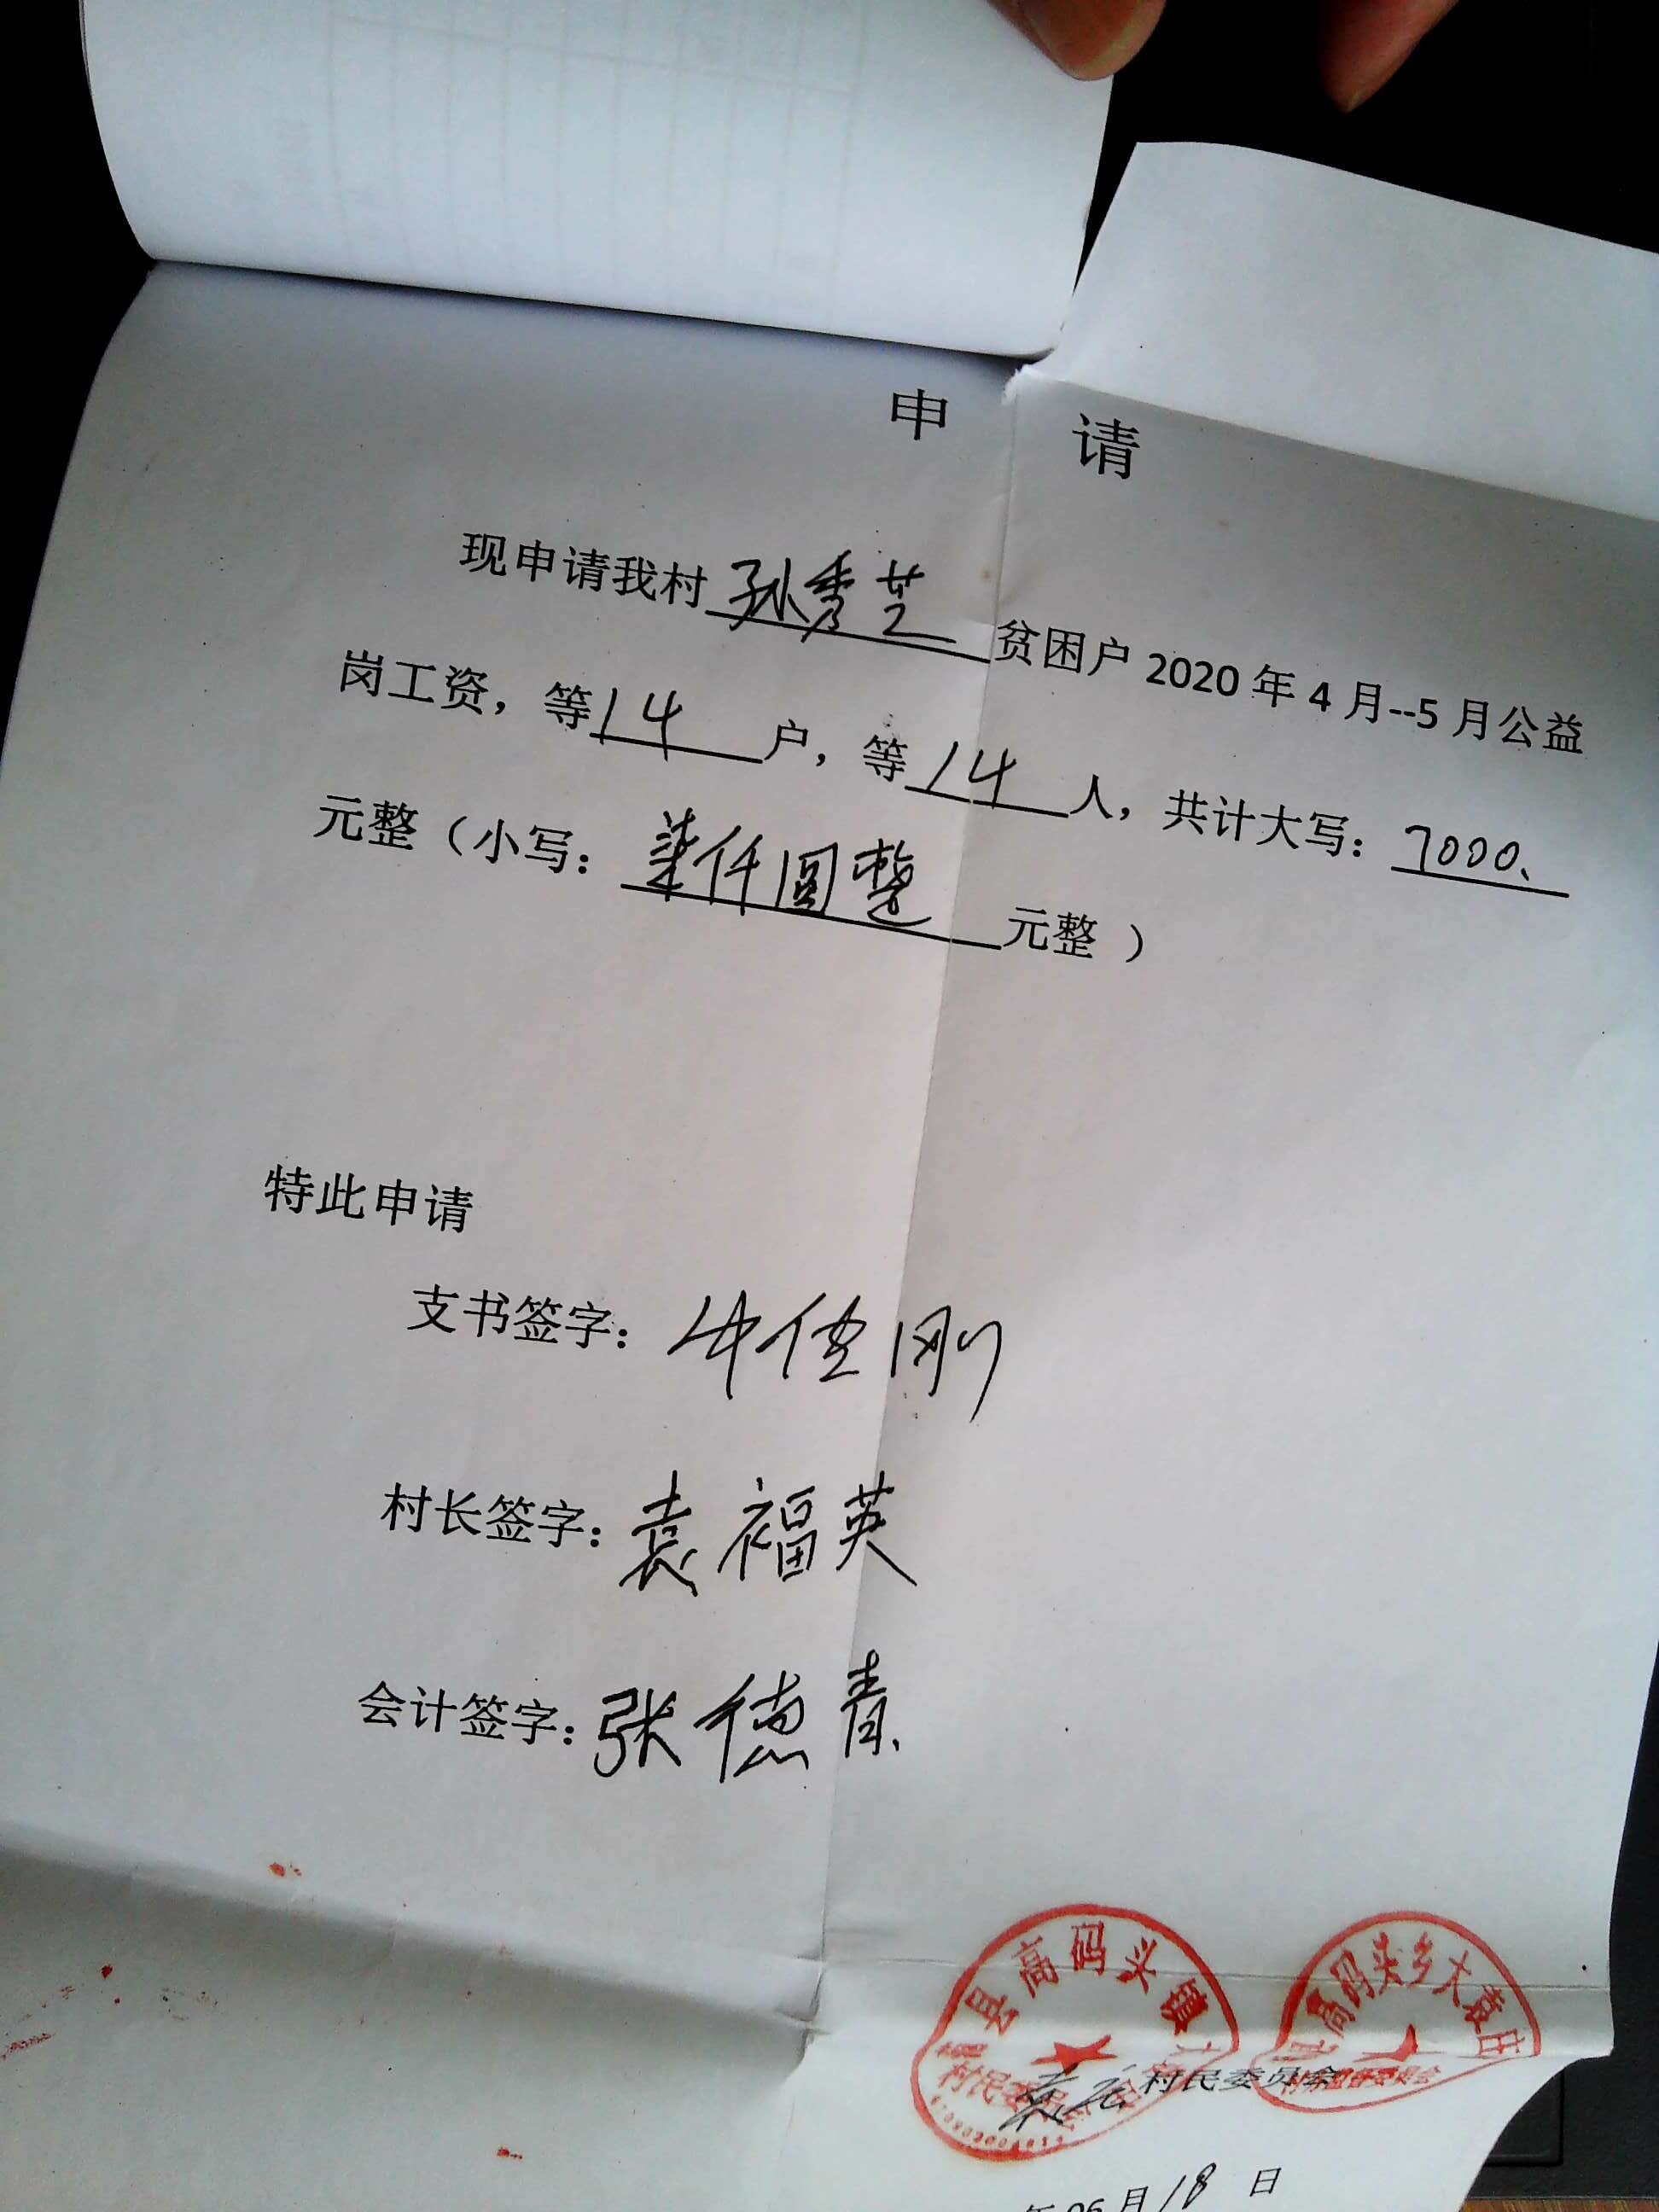 申 请
现申请我村孙秀芝贫困户 2020 年 4 月--5 月公益
岗工资，等14户，等14人，共计大写：7000.
元整（小写：柒仟圆整元整）
特此申请
支书签字：牛佳刚
村长签字：袁福英
会计签字：张德青
县高码头镇
村民委员会
高码头乡大袁庄
村务监督委员会
村民委员会
年 06 月 18 日